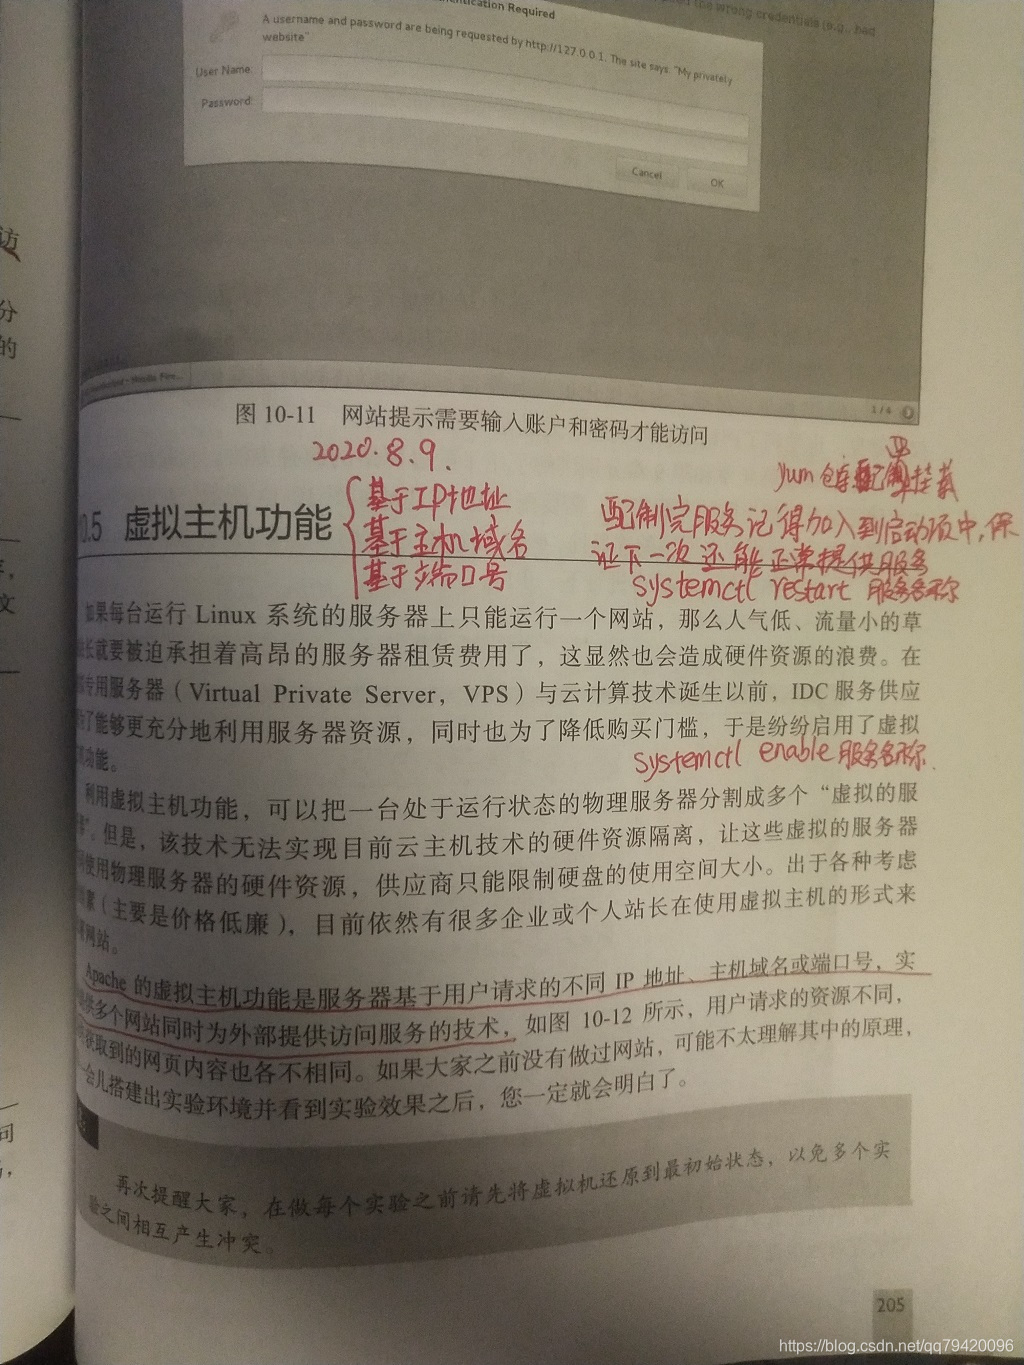 Authentication Required
the wrong credentials (e.g., bad
A username and password are being requested by http://127.0.0.1. The site says: "My privately
website"
User Name:
Password:
Cancel
OK
1/4
访
分
的
文
问
图 10-11 网站提示需要输入账户和密码才能访问
2020.8.9.
yum仓库配置 挂载
基于IP地址
基于主机域名
基于端口号
配制完服务记得加入到启动项中,保
证下一次还能正常提供服务
systemctl restart 服务名称
0.5 虚拟主机功能
如果每台运行 Linux 系统的服务器上只能运行一个网站，那么人气低、流量小的草
长就要被迫承担着高昂的服务器租赁费用了，这显然也会造成硬件资源的浪费。在
专用服务器（Virtual Private Server，VPS）与云计算技术诞生以前，IDC 服务供应
了能够更充分地利用服务器资源，同时也为了降低购买门槛，于是纷纷启用了虚拟
功能。
systemctl enable 服务名称.
利用虚拟主机功能，可以把一台处于运行状态的物理服务器分割成多个“虚拟的服
”。但是，该技术无法实现目前云主机技术的硬件资源隔离，让这些虚拟的服务器
使用物理服务器的硬件资源，供应商只能限制硬盘的使用空间大小。出于各种考虑
素（主要是价格低廉），目前依然有很多企业或个人站长在使用虚拟主机的形式来
网站。
Apache 的虚拟主机功能是服务器基于用户请求的不同 IP 地址、主机域名或端口号，实
供多个网站同时为外部提供访问服务的技术，如图 10-12 所示，用户请求的资源不同，
获取到的网页内容也各不相同。如果大家之前没有做过网站，可能不太理解其中的原理，
一会儿搭建出实验环境并看到实验效果之后，您一定就会明白了。
再次提醒大家，在做每个实验之前请先将虚拟机还原到最初始状态，以免多个实
验之间相互产生冲突。
205
https://blog.csdn.net/qq79420096